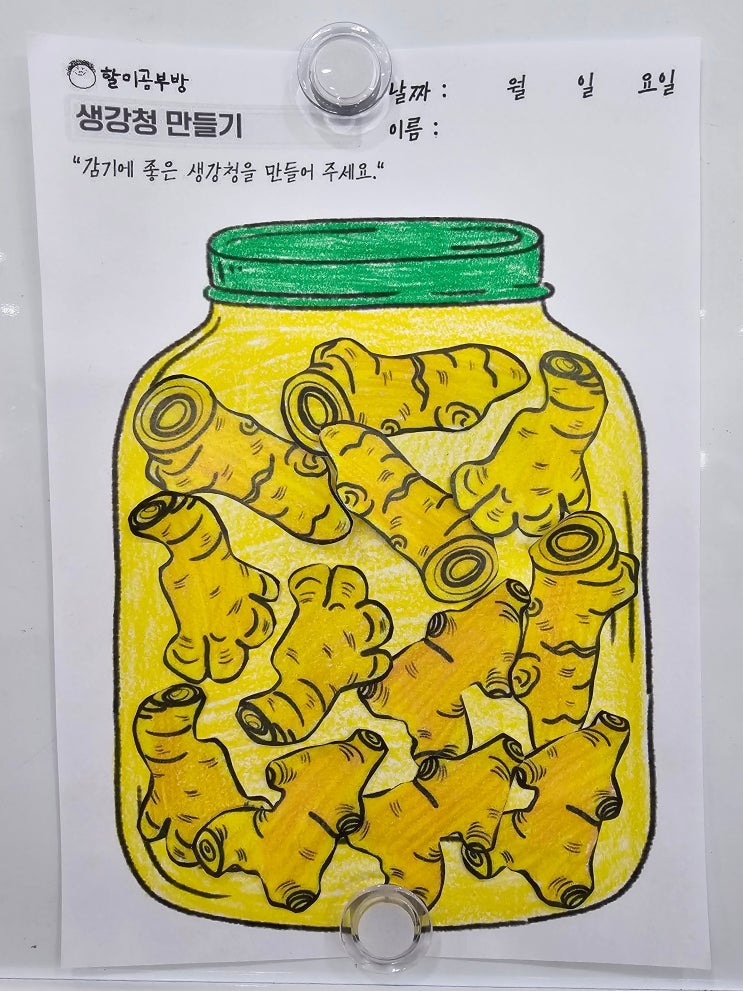 할미공부방
생강청 만들기
날짜 : 월 일 요일
이름 :
“감기에 좋은 생강청을 만들어 주세요.“